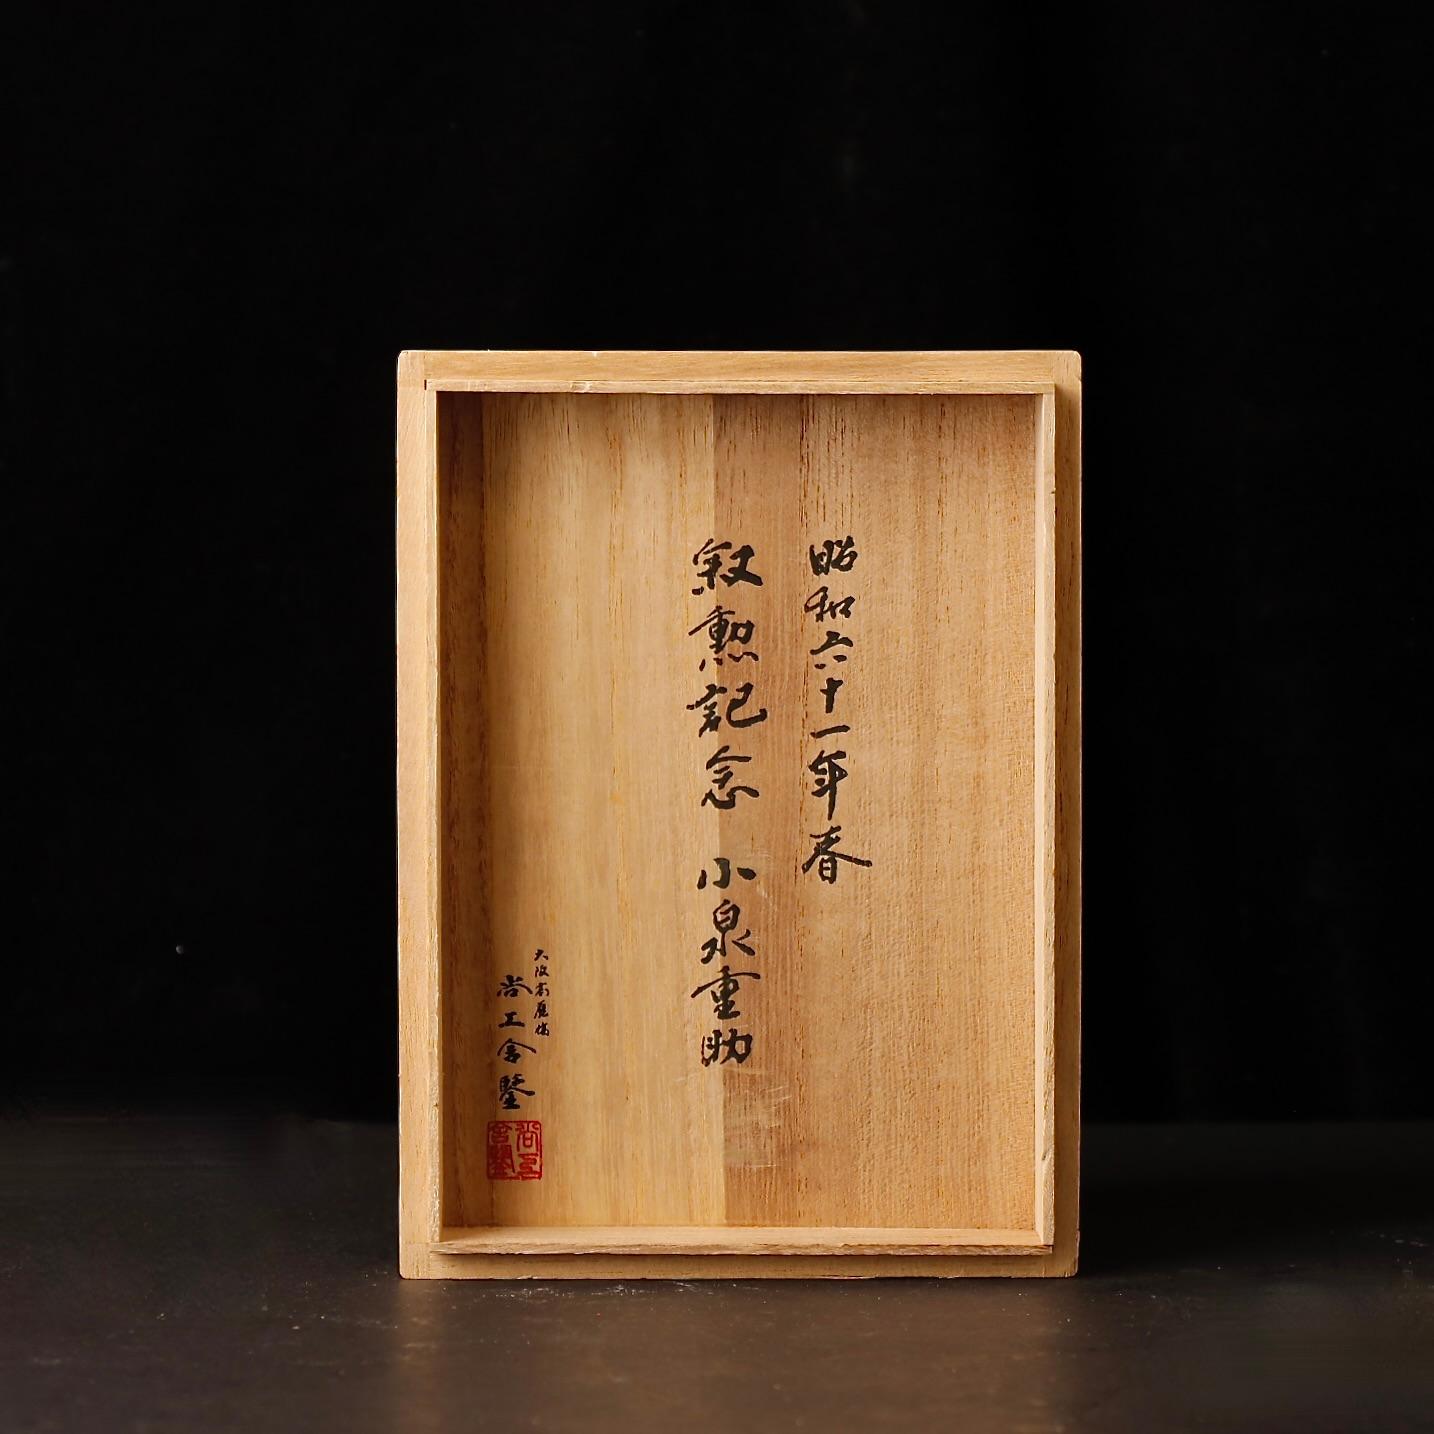 昭和六十一年春
叙勲記念 小泉重助
大阪高麗橋
尚工舎鑒